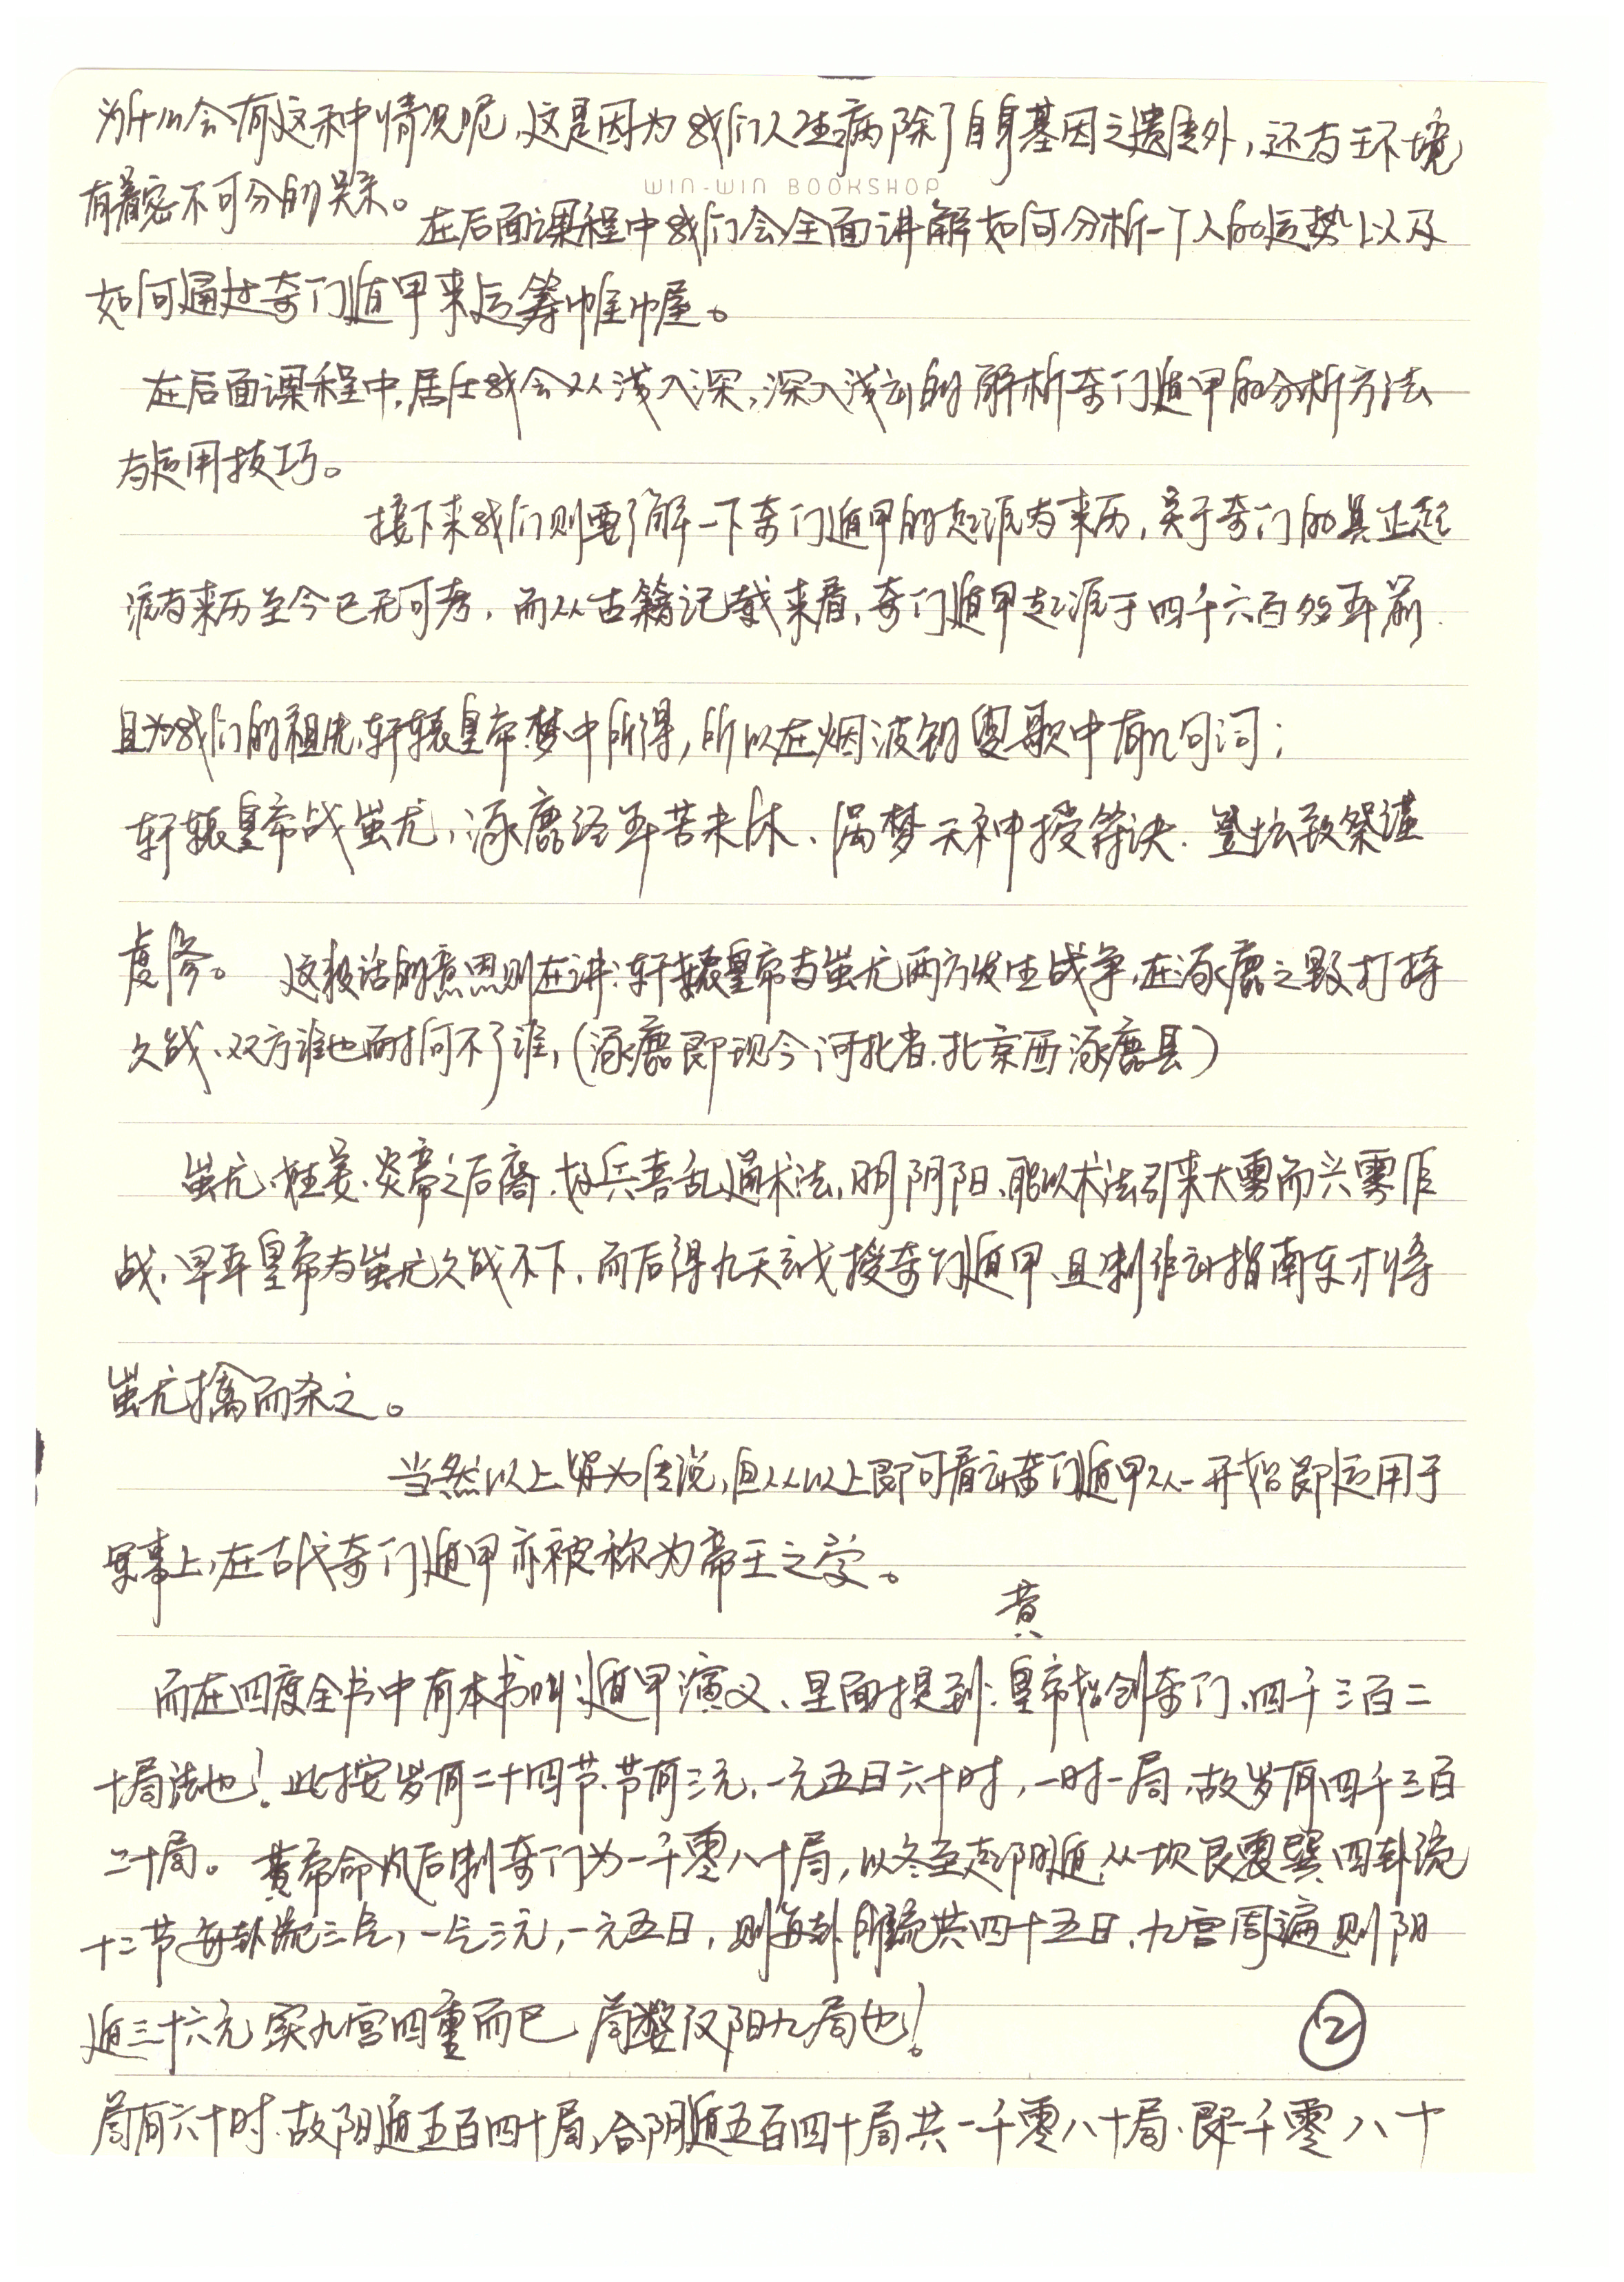 为什么会有这种情况呢,这是因为我们人生病除了自身基因之遗传外,还与环境
WIN-WIN BOOKSHOP
有着密不可分的关系。
在后面课程中我们会全面讲解如何分析一个人的运势以及
如何通过奇门遁甲来运筹帷幄。
在后面课程中,居士我会从浅入深,深入浅出的解析奇门遁甲的分析方法
与运用技巧。
接下来我们则要了解一下奇门遁甲的起源与来历,关于奇门的真正起
源与来历至今已无可考,而从古籍记载来看,奇门遁甲起源于四千六百多年前
且为我们的祖先、轩辕皇帝梦中所得,所以在烟波钓叟歌中有几句词;
轩辕皇帝战蚩尤,涿鹿经年苦未休、偶梦天神授符诀.登坛致祭谨
虔修。 这段话的意思则在讲:轩辕皇帝与蚩尤两方发生战争,在涿鹿之野打持
久战、双方谁也耐何不了谁,(涿鹿即现今河北省.北京西涿鹿县)
蚩尤、姓姜、炎帝之后裔.好兵喜乱通术法,明阴阳、能以术法引来大雾而兴雾作
战、早年皇帝与蚩尤久战不下,而后得九天玄女授奇门遁甲、且制作出指南车才将
蚩尤擒而杀之。
当然以上皆为传说,但从以上即可看出奇门遁甲从一开始即运用于
军事上,在古代奇门遁甲亦被称为帝王之学。
黄
而在四度全书中有本书叫遁甲演义、里面提到:皇帝始创奇门、四千三百二
十局法也!此按岁有二十四节、节有三元,一元五日六十时,一时一局,故岁有四千三百
二十局。黄帝命风后制奇门为一千零八十局,以冬至起阴遁,从坎艮震巽四卦统
十二节每卦统三气,一气三元,一元五日,则每卦所统共四十五日、九宫周遍则阴
遁三十六元实九宫四重而已 局数仅阳九局也!
②
局有六十时.故阳遁五百四十局,合阴遁五百四十局共一千零八十局.即一千零八十